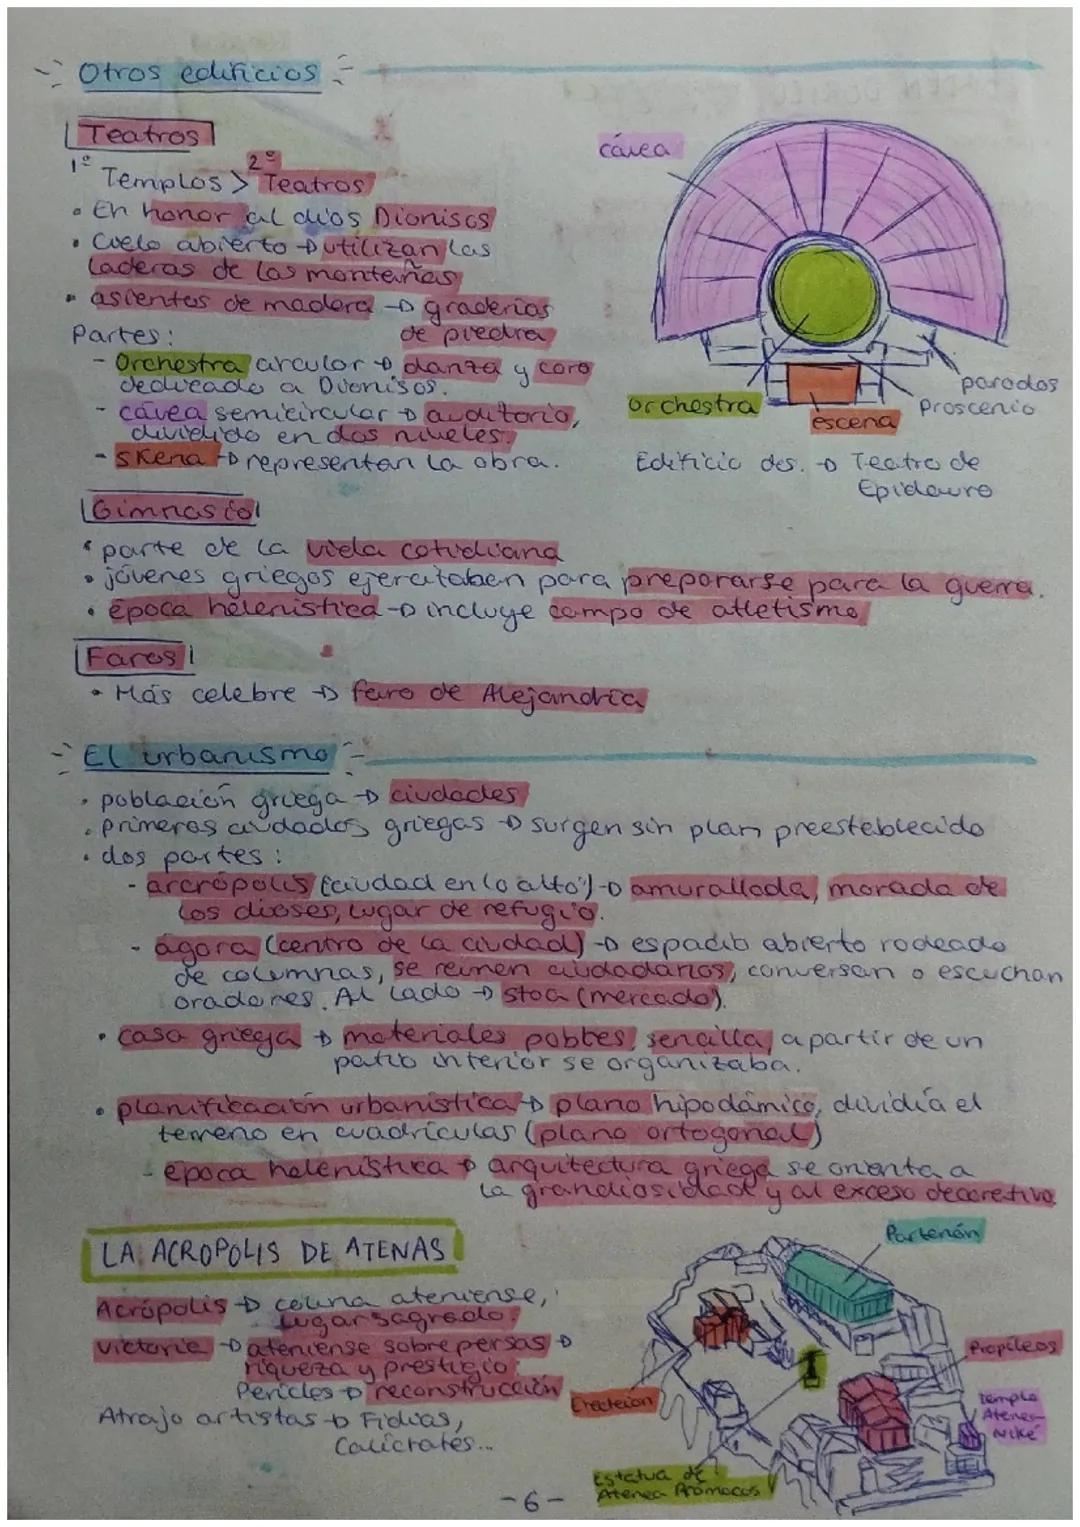 Otros edificios
Teatros
1º Templos > 2º Teatros
• En honor al dios Dionisos
• Cielo abierto → utilizan las
laderas de las montañas
• asientos de madera → graderías
de piedra
Partes:
- Orchestra circular → danza y coro
dedicado a Dionisos.
- cávea semicircular → auditorio,
dividido en dos niveles.
- Skena → representan la obra.
cávea
orchestra
escena
parodos
Proscenio
Edificio des. → Teatro de
Epidauro
Gimnasio
• parte de la vida cotidiana
• jóvenes griegos ejercitaban para prepararse para la guerra.
• época helenística → incluye campo de atletismo
Faros
• Más celebre → faro de Alejandría
El urbanismo
• población griega → ciudades
• Primeras ciudades griegas → surgen sin plan preestablecido
• dos partes:
- arcrópolis ("ciudad en lo alto") → amurallada, morada de
los dioses, lugar de refugio.
- ágora (centro de la ciudad) → espacio abierto rodeado
de columnas, se reúnen ciudadanos, conversan o escuchan
oradores. Al lado → stoa (mercado).
• casa griega → materiales pobres, sencilla, a partir de un
patio interior se organizaba.
• planificación urbanística → plano hipodámico, dividía el
terreno en cuadrículas (plano ortogonal)
- época helenística → arquitectura griega se orienta a
la grandiosidad y al exceso decorativo
LA ACROPOLIS DE ATENAS
Acrópolis → colina ateniense,
lugar sagrado.
victoria → ateniense sobre persas →
riqueza y prestigio.
Pericles → reconstrucción
Atrajo artistas → Fidias,
Calícrates...
Partenón
Propileos
templo
Atenea
Niké
Erecteion
Estatua de
Atenea Promacos
-6-